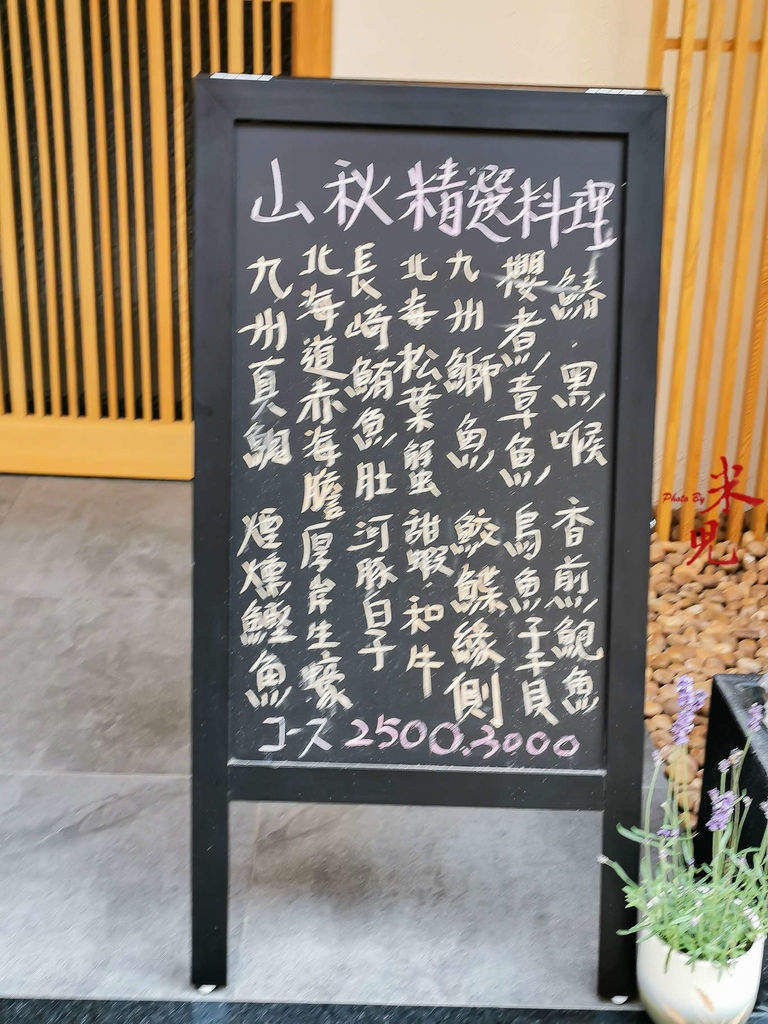 山秋精選料理
鰆·黑喉 香煎鮑魚
櫻煮章魚 烏魚子干貝
九州鰤魚 鮫鰈緣側
北海松葉蟹 甜蝦·和牛
長崎鮪魚肚 河豚白子
北海道赤海膽 厚岸生蠔
九州真鯛 煙燻鰹魚
コース 2500.3000
Photo By 米兒